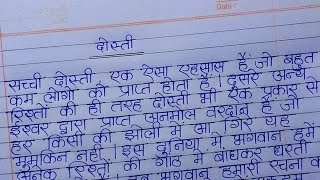 Date :
दोस्ती
सच्ची दोस्ती, एक ऐसा एहसास है जो बहुत
कम लोगों को प्राप्त होता है। दूसरे अन्य
रिश्तों की ही तरह दोस्ती भी एक प्रकार से
ईश्वर द्वारा प्राप्त अनमोल वरदान है जो
हर किसी की झोली में आ गिरे यह
मुमकिन नहीं। इस दुनिया में भगवान हमें
अनेक रिश्तों की गाँठ में बाँधकर धरती
भगवान हमारी रचना क